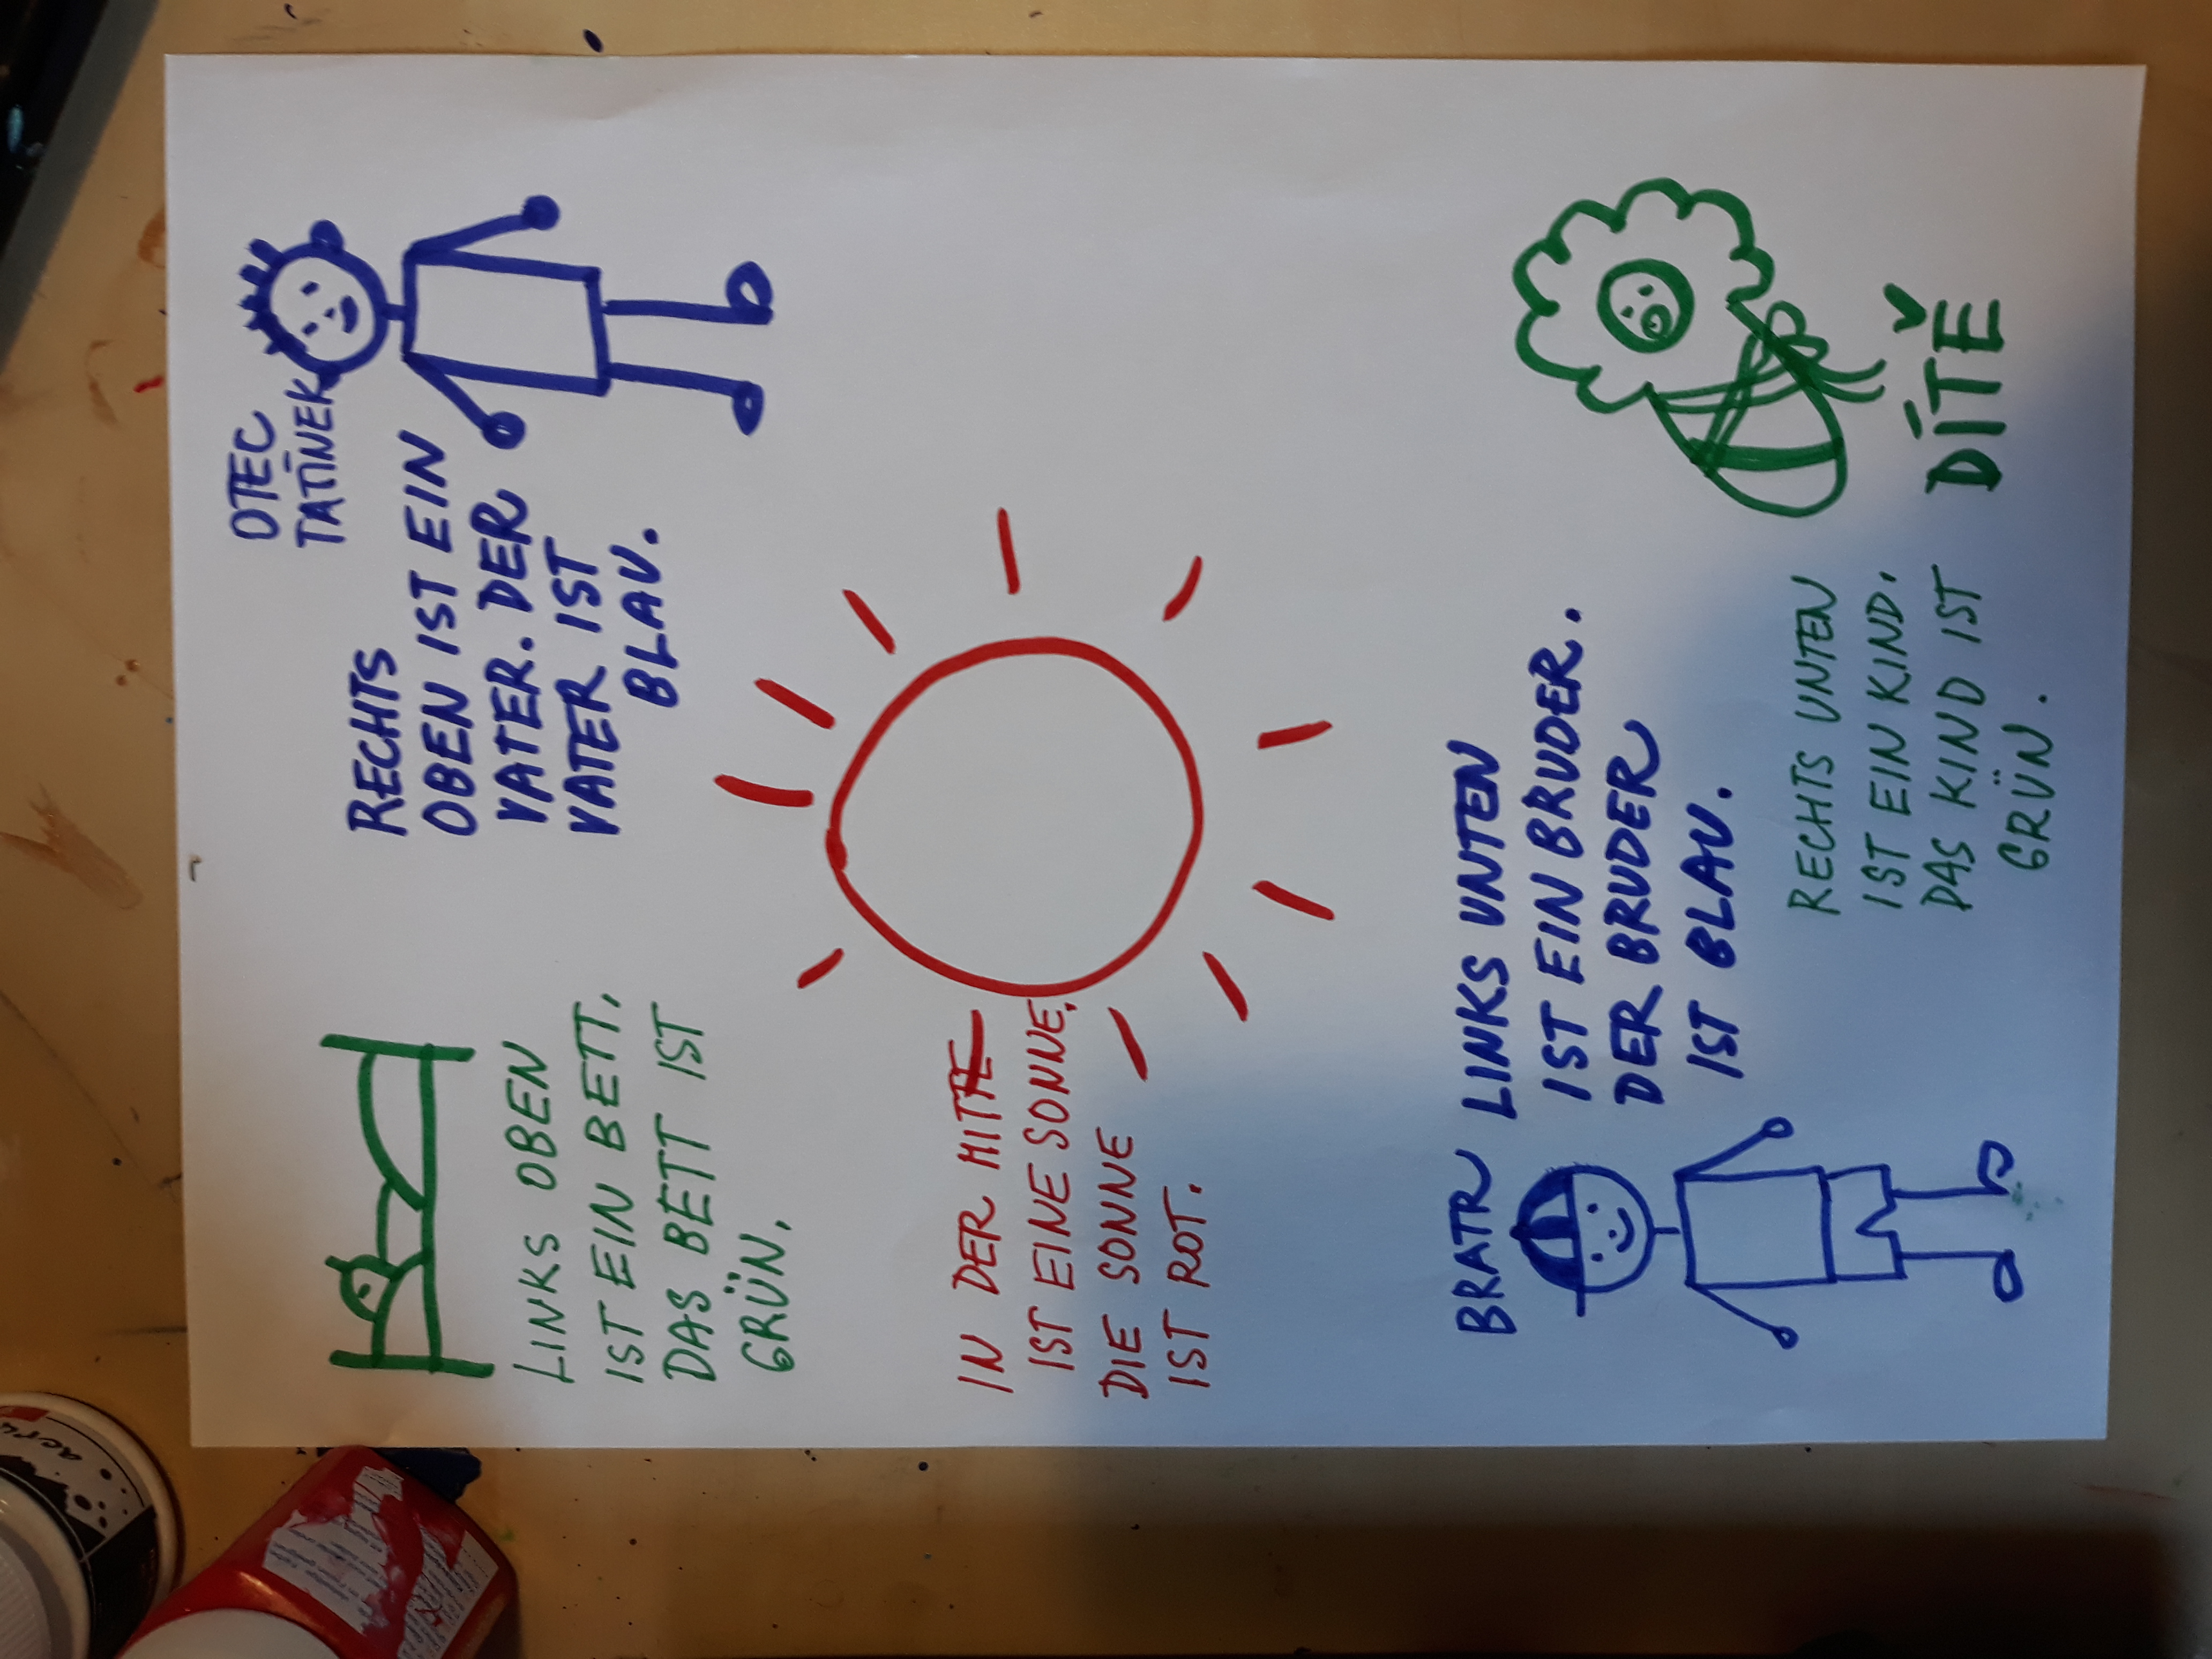 OTEC
TATÍNEK
RECHTS
OBEN IST EIN
VATER. DER
VATER IST
BLAU.
LINKS OBEN
IST EIN BETT.
DAS BETT IST
GRÜN.
IN DER MITTE
IST EINE SONNE.
DIE SONNE
IST ROT.
BRATR
LINKS UNTEN
IST EIN BRUDER.
DER BRUDER
IST BLAU.
DÍTĚ
RECHTS UNTEN
IST EIN KIND.
DAS KIND IST
GRÜN.